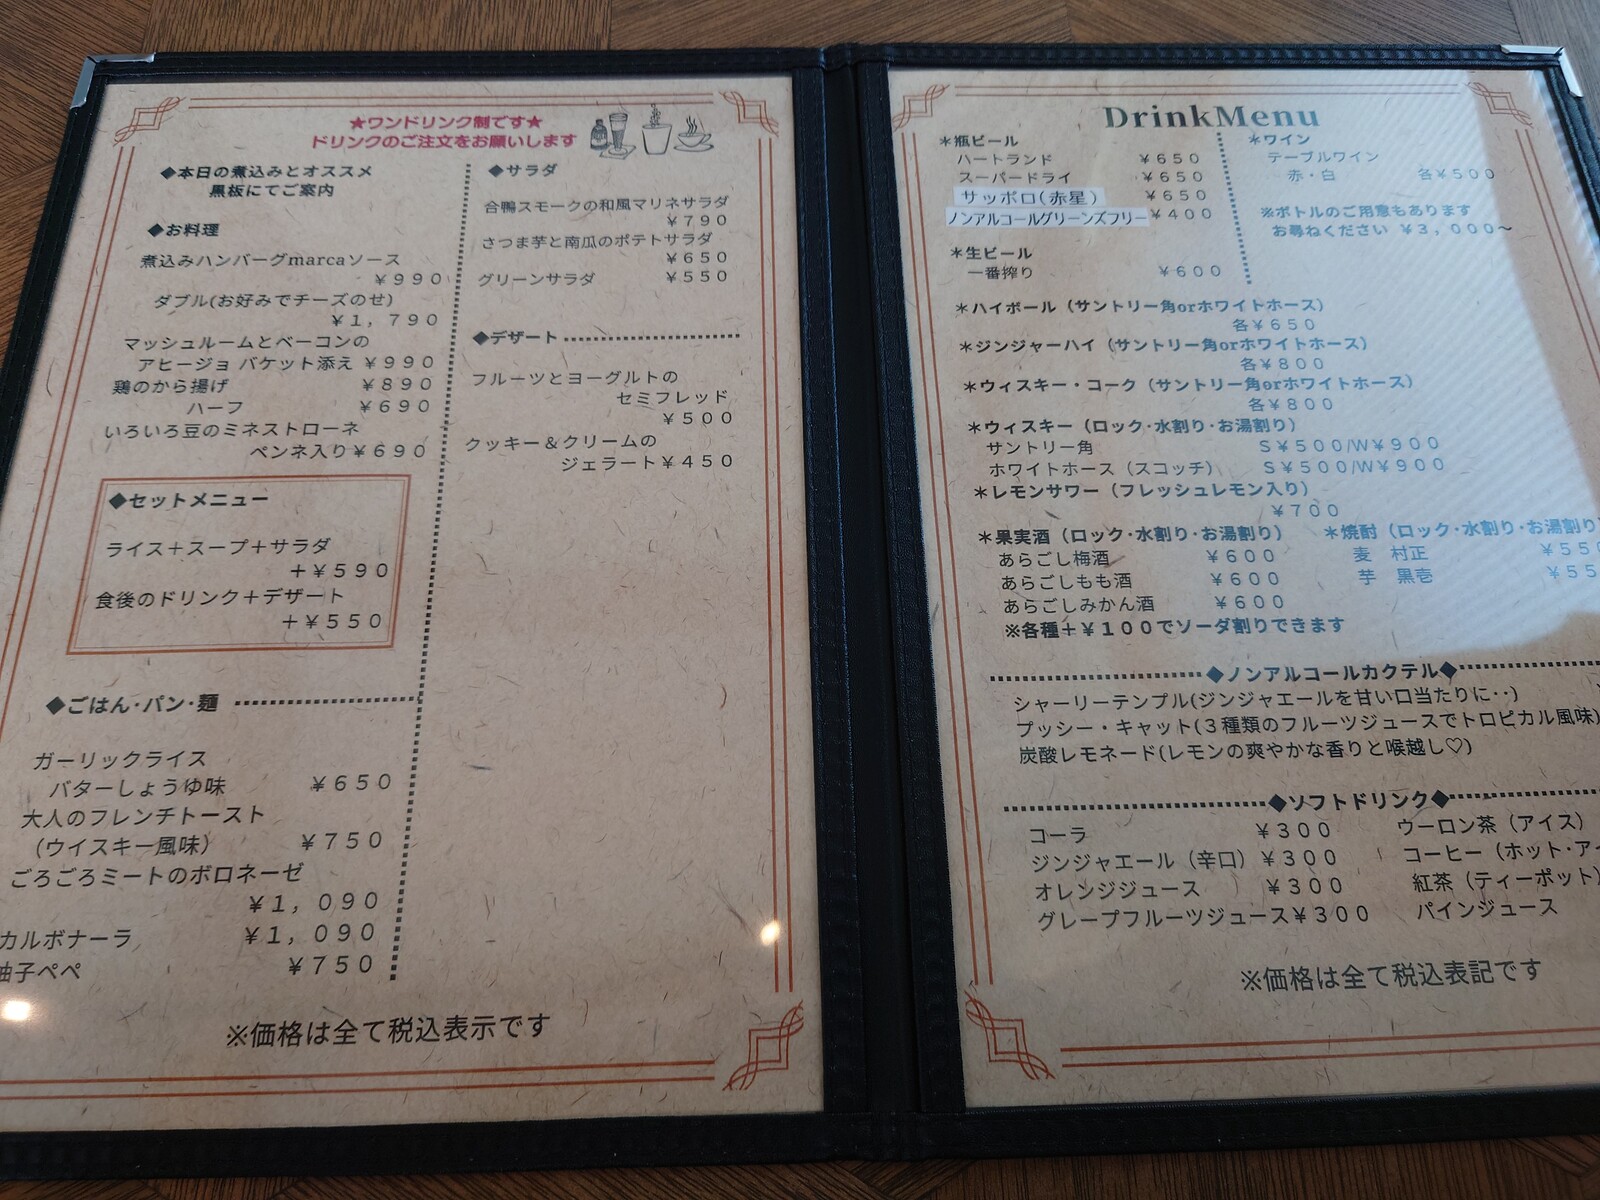 ★ワンドリンク制です★
ドリンクのご注文をお願いします
◆本日の煮込みとオススメ
黒板にてご案内
◆お料理
煮込みハンバーグmarcaソース
￥９９０
ダブル(お好みでチーズのせ)
￥１，７９０
マッシュルームとベーコンの
アヒージョ バケット添え ￥９９０
鶏のから揚げ ￥８９０
ハーフ ￥６９０
いろいろ豆のミネストローネ
ペンネ入り￥６９０
◆セットメニュー
ライス＋スープ＋サラダ
＋￥５９０
食後のドリンク＋デザート
＋￥５５０
◆ごはん・パン・麺
ガーリックライス
バターしょうゆ味 ￥６５０
大人のフレンチトースト
（ウイスキー風味） ￥７５０
ごろごろミートのボロネーゼ
￥１，０９０
カルボナーラ ￥１，０９０
柚子ペペ ￥７５０
◆サラダ
合鴨スモークの和風マリネサラダ
￥７９０
さつま芋と南瓜のポテトサラダ
￥６５０
グリーンサラダ ￥５５０
◆デザート
フルーツとヨーグルトの
セミフレッド
￥５００
クッキー＆クリームの
ジェラート￥４５０
※価格は全て税込表示です
DrinkMenu
＊瓶ビール
ハートランド ￥６５０
スーパードライ ￥６５０
サッポロ(赤星) ￥６５０
ノンアルコールグリーンズフリー￥４００
＊生ビール
一番搾り ￥６００
＊ワイン
テーブルワイン
赤・白 各￥５００
※ボトルのご用意もあります
お尋ねください ￥３，０００～
＊ハイボール（サントリー角orホワイトホース）
各￥６５０
＊ジンジャーハイ（サントリー角orホワイトホース）
各￥８００
＊ウィスキー・コーク（サントリー角orホワイトホース）
各￥８００
＊ウィスキー（ロック・水割り・お湯割り）
サントリー角 Ｓ￥５００/Ｗ￥９００
ホワイトホース（スコッチ） Ｓ￥５００/Ｗ￥９００
＊レモンサワー（フレッシュレモン入り）
￥７００
＊果実酒（ロック・水割り・お湯割り）
あらごし梅酒 ￥６００
あらごしもも酒 ￥６００
あらごしみかん酒 ￥６００
※各種＋￥１００でソーダ割りできます
＊焼酎（ロック・水割り・お湯割り
麦 村正 ￥５５０
芋 黒壱 ￥５５
◆ノンアルコールカクテル◆
シャーリーテンプル(ジンジャエールを甘い口当たりに‥)
プッシー・キャット(３種類のフルーツジュースでトロピカル風味)
炭酸レモネード(レモンの爽やかな香りと喉越し♡)
◆ソフトドリンク◆
コーラ ￥３００
ジンジャエール（辛口）￥３００
オレンジジュース ￥３００
グレープフルーツジュース￥３００
ウーロン茶（アイス）
コーヒー（ホット・アイ
紅茶（ティーポット）
パインジュース
※価格は全て税込表記です